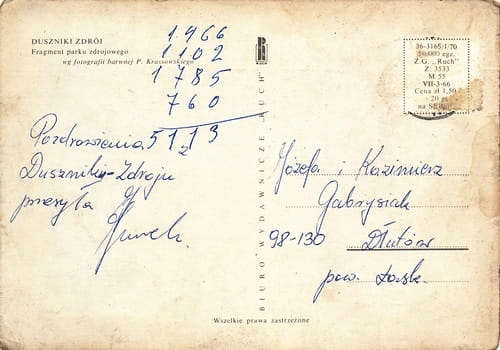 DUSZNIKI ZDRÓJ
Fragment parku zdrojowego
wg fotografii barwnej P. Krassowskiego
1966
1102
1785
760
5113
Pozdrowienia
z
Duszniky-Zdroju
przesyła
BIURO WYDAWNICZE „RUCH”
36-3165/I/70
egz.
Z.G. „Ruch”
Z. 3533
M 55
VII-3-66
Cena zł 1,50
+ 20 gr
na SFBS
Józefa i Kazimierz
Gabrysiak
98-130 Dłutów
pow. Łask.
Wszelkie prawa zastrzeżone